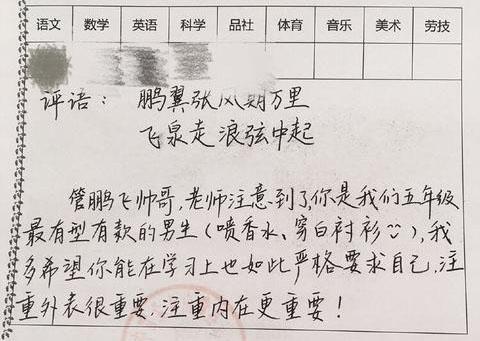 语文 数学 英语 科学 品社 体育 音乐 美术 劳技
评语：鹏翼张风期万里
飞泉走浪弦中起
管鹏飞帅哥，老师注意到了，你是我们五年级
最有型有款的男生（喷香水、穿白衬衫☺），我
多希望你能在学习上也如此严格要求自己，注
重外表很重要，注重内在更重要！